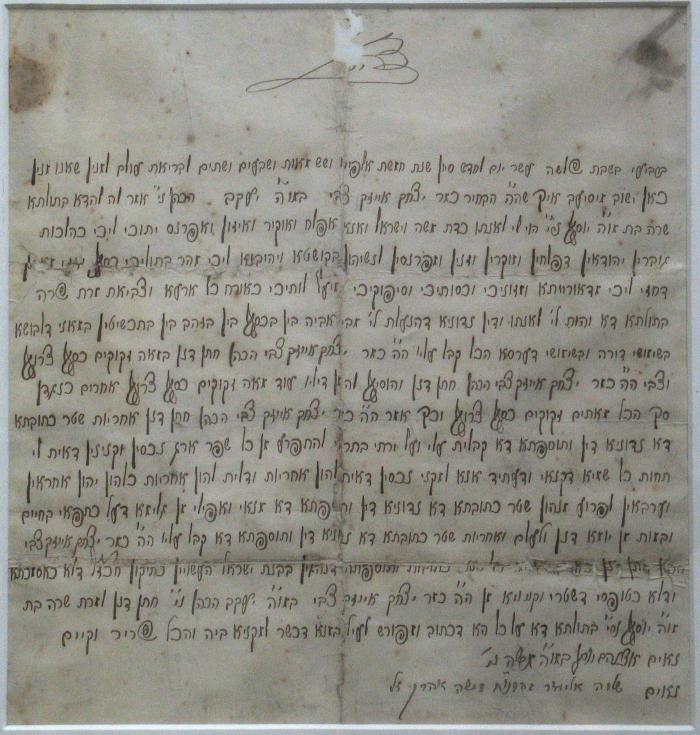 ברביעי בשבת שלשה עשר יום לחדש סיון שנת חמשת אלפים ושש מאות ושבעים ושתים לבריאת עולם למנין שאנו מנין
כאן ישוב איך שה"ה הבחיר כמר יצחק אייזק צבי במו"ה יעקב הכהן ני' אמר לה להדא בתולתא
שרה בת מו"ה יוסף ני' הוי לי לאנתו כדת משה וישראל ואנא אפלח ואוקיר ואיזון ואפרנס יתיכי ליכי כהלכות
גוברין יהודאין דפלחין ומוקרין וזנין ומפרנסין לנשיהון בקושטא ויהיבנא ליכי מהר בתוליכי כסף זוזי מאתן
דחזי ליכי מדאורייתא ומזוניכי וכסותיכי וסיפוקיכי ומיעל לותיכי כאורח כל ארעא וצביאת מרת שרה
בתולתא דא והות לי' לאנתו ודין נדוניא דהנעלת לי' מבי אביה בין בכסף בין בזהב בין בתכשיטין במאני דלבושא
בשימושי דירה ובשימושי דערסא הכל קבל עליו ה"ה כמר יצחק אייזק צבי הכהן חתן דנן במאה זקוקים כסף צרוף
וצבי ה"ה כמר יצחק אייזק צבי הכהן חתן דנן והוסיף לה מן דיליה עוד מאה זקוקים כסף צרוף אחרים כנגדן
סך הכל מאתים זקוקים כסף צרוף וכך אמר ה"ה כמר יצחק אייזק צבי הכהן חתן דנן אחריות שטר כתובתא
דא נדוניא דין ותוספתא דא קבלית עלי ועל ירתי בתרי להתפרע מן כל שפר ארג נכסין וקנינין דאית לי
תחות כל שמיא דקנאי ודעתיד אנא לאקני נכסין דאית להון אחריות ודלית להון אחריות כלהון יהון אחראין
וערבאין לפרוע מנהון שטר כתובתא דא נדוניא דין ותוספתא דא מנאי ואפילו מן גלימא דעל כתפאי בחיים
ובמות מן יומא דנן ולעלם ואחריות שטר כתובתא דא נדוניא דין ותוספתא דא קבל עליו ה"ה כמר יצחק אייזק צבי
הכהן חתן דנן ותוספתות דנהגין בבנת ישראל העשויין כתיקון חכז"ל דלא כאסמכתא
ודלא כטופסי דשטרי וקנינא מן ה"ה כמר יצחק אייזק צבי במו"ה יעקב הכהן ני' חתן דנן למרת שרה בת
מו"ה יוסף ני' בתולתא דא על כל הא דכתוב ומפורש לעיל במנא דכשר למקניא ביה והכל שריר וקיים
נאום במו"ה משה ני'
נאום משה אהרן ז"ל